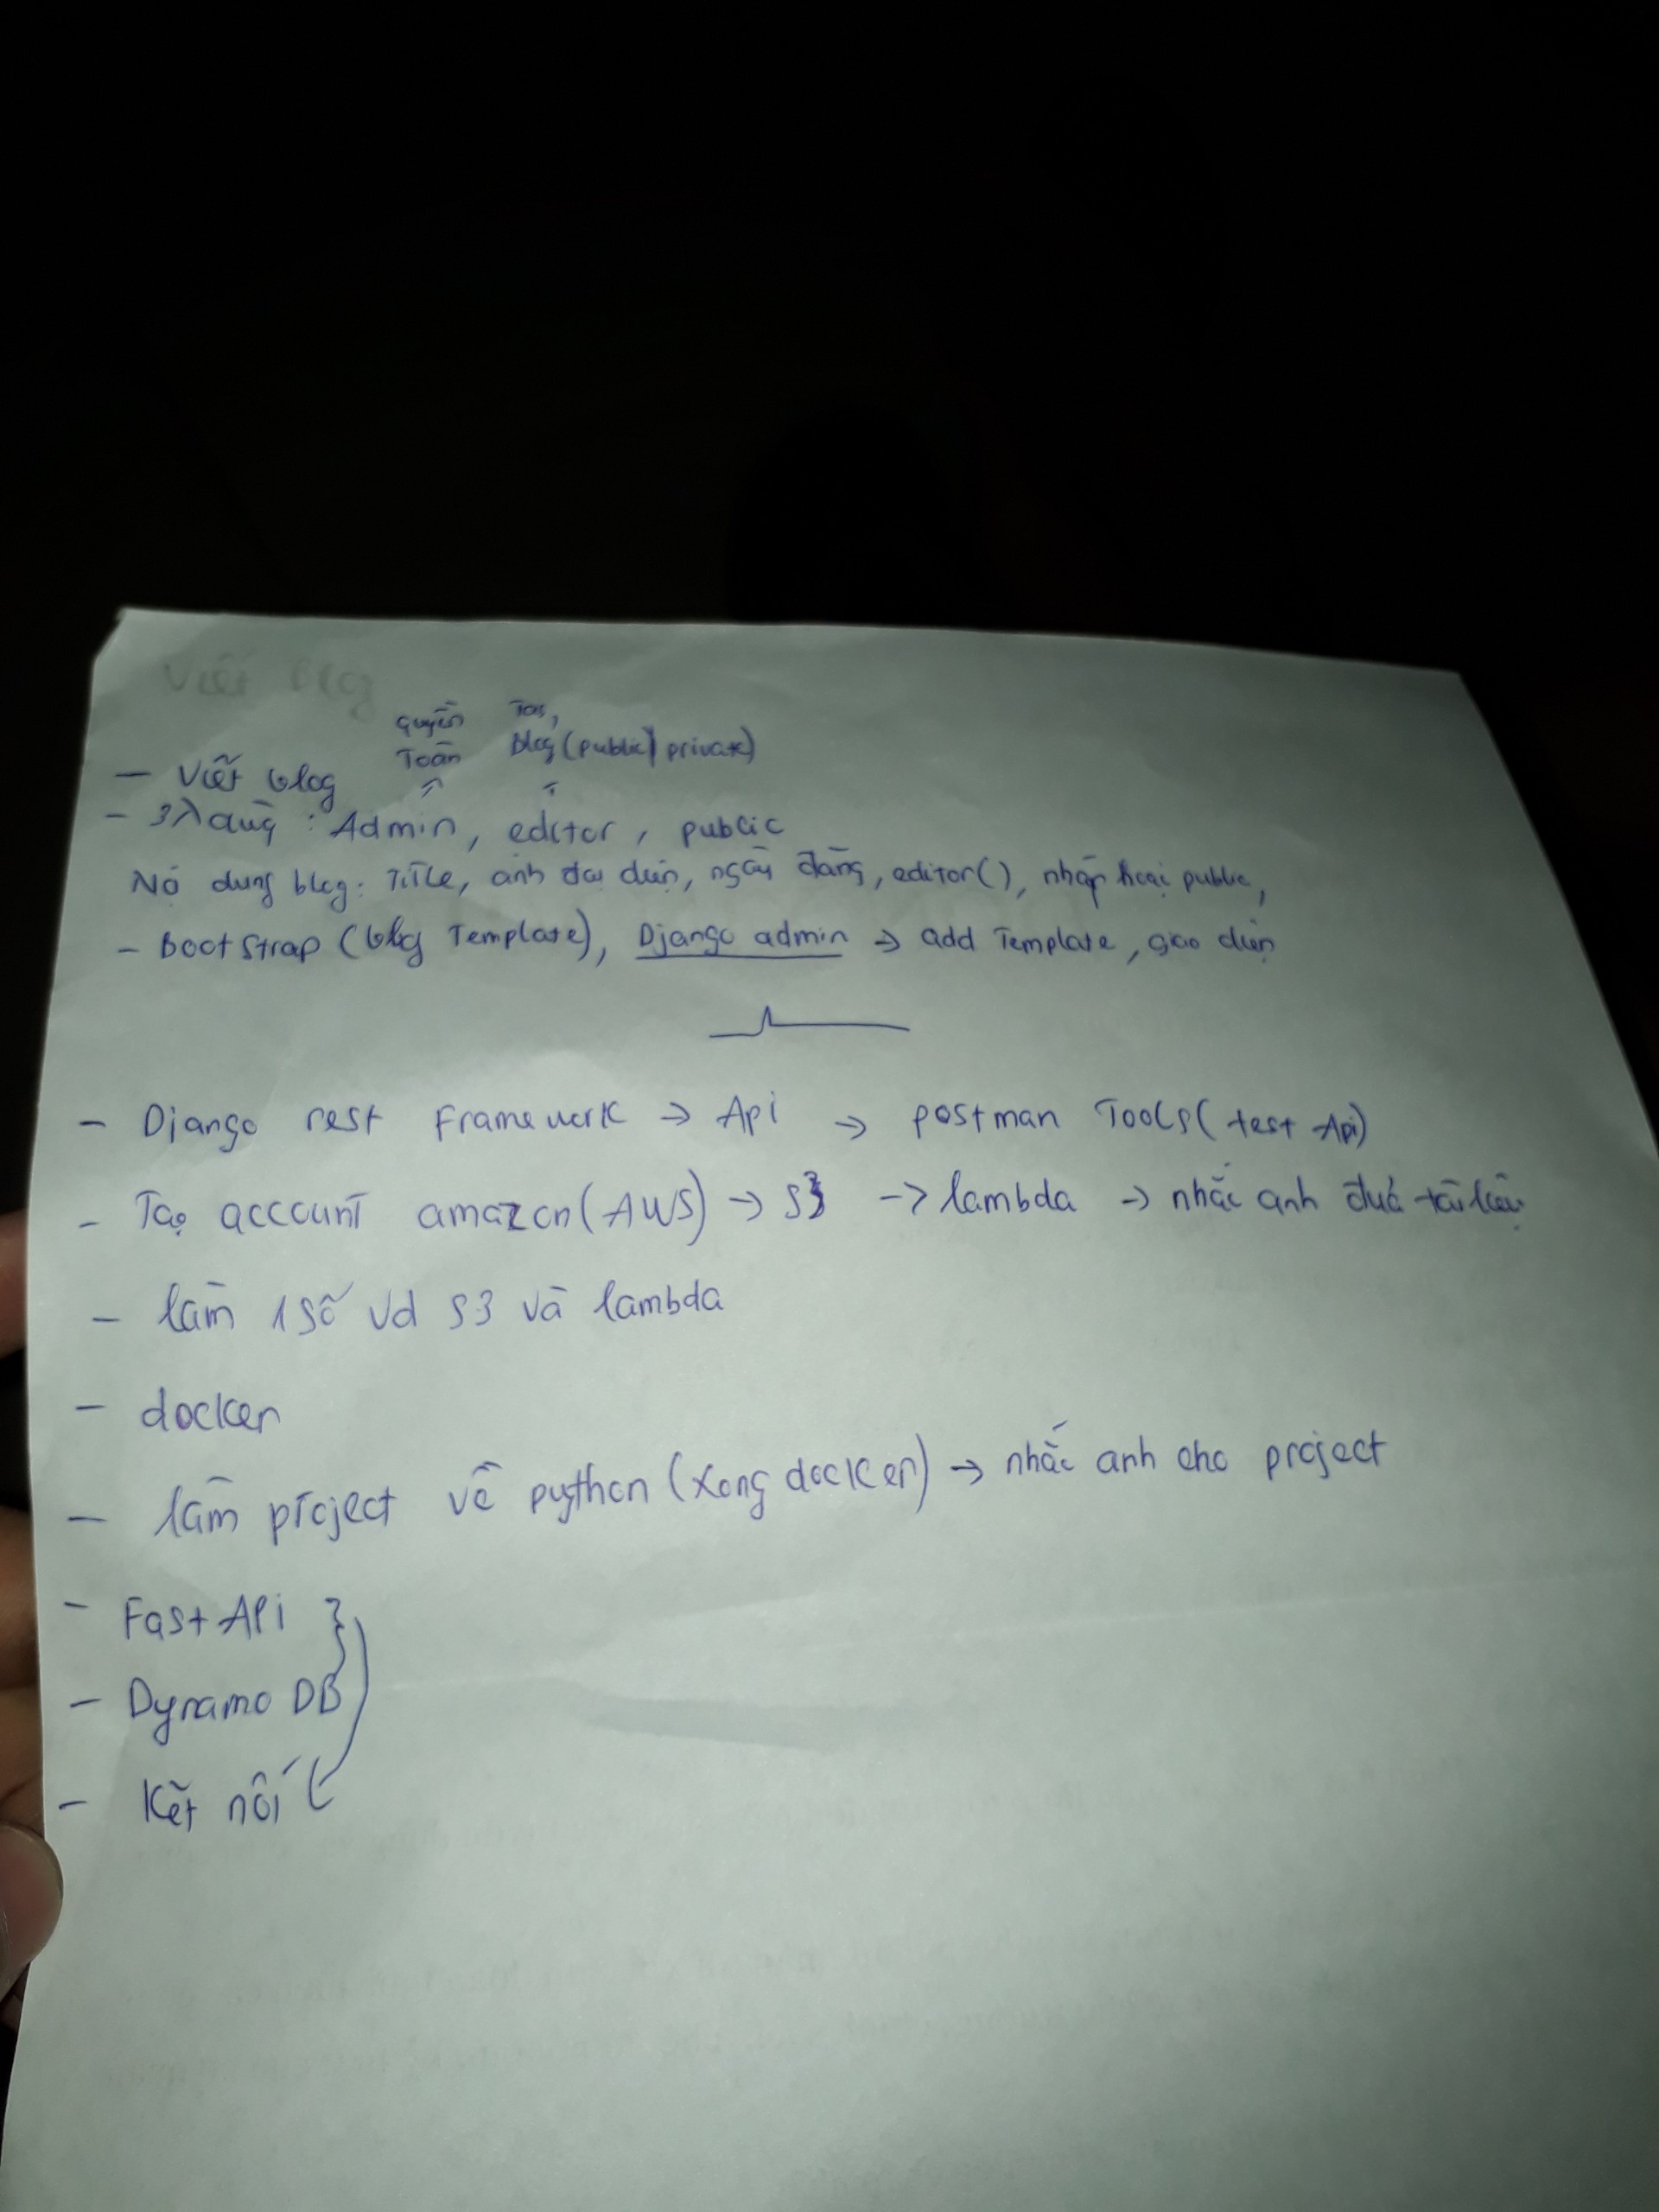 Viết blog
quyền Tạo,
Toàn blog (public | private)
- Viết blog
- 3 : Admin, editor, public
Nộ dung blog: Title, ảnh đại diện, ngày đăng, editor(), nháp hoặc public,
- Bootstrap (blog Template), Django admin → add Template, giao diện
- Django rest Framework → Api → postman Tools (test Api)
- Tạo account amazon (AWS) → S3 → lambda → nhắc anh đưa tài liệu
- làm 1 số vd S3 và lambda
- docker
- làm project về python (xong docker) → nhắc anh cho project
- Fast APi
- Dynamo DB
- Kết nối